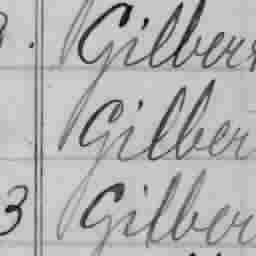 Gilber
Gilber
3 Gilber